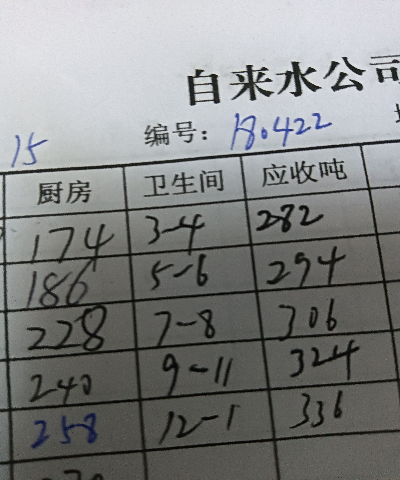 自来水公司
15 编号: 18.422
厨房 卫生间 应收吨
174 3-4 282
186 5-6 294
228 7-8 306
240 9-11 324
258 12-1 336